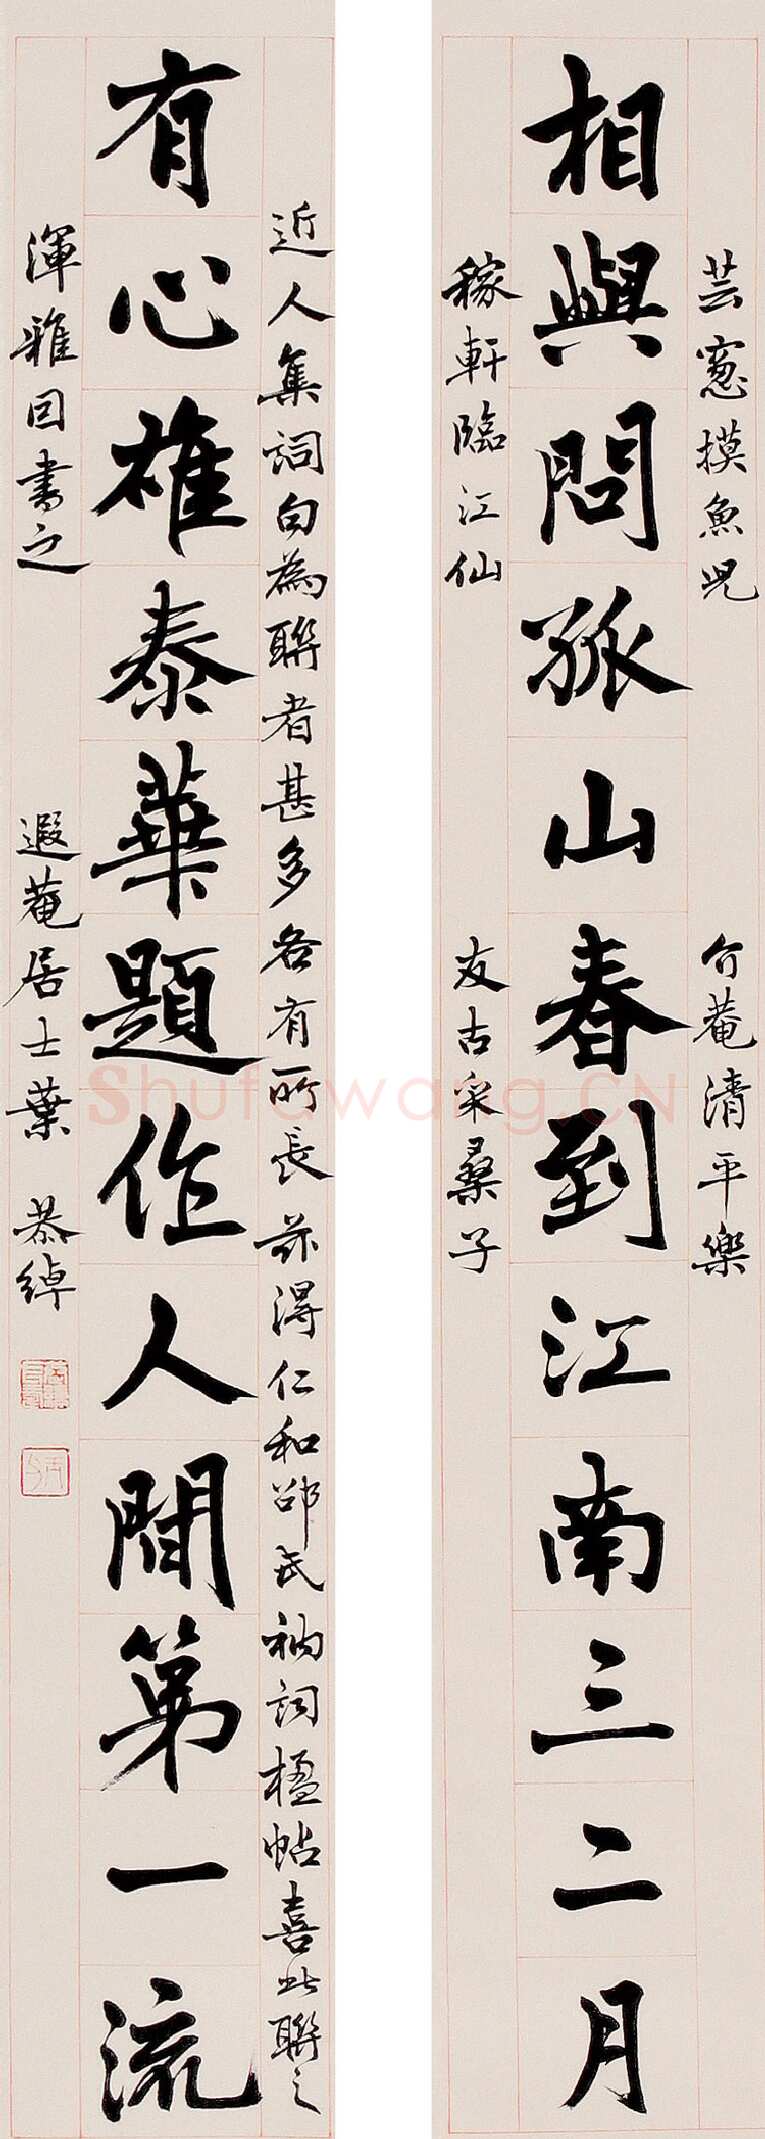 芸窗摸魚兒
介菴清平樂
相與問孤山春到江南三二月
稼軒臨江仙
友古采桑子
近人集詞句為聯者甚多各有所長茲得仁和邵氏衲詞楹帖喜此聯之
有心雄泰華題作人間第一流
渾雅因書之
遐菴居士葉恭綽
Shufawang.CN